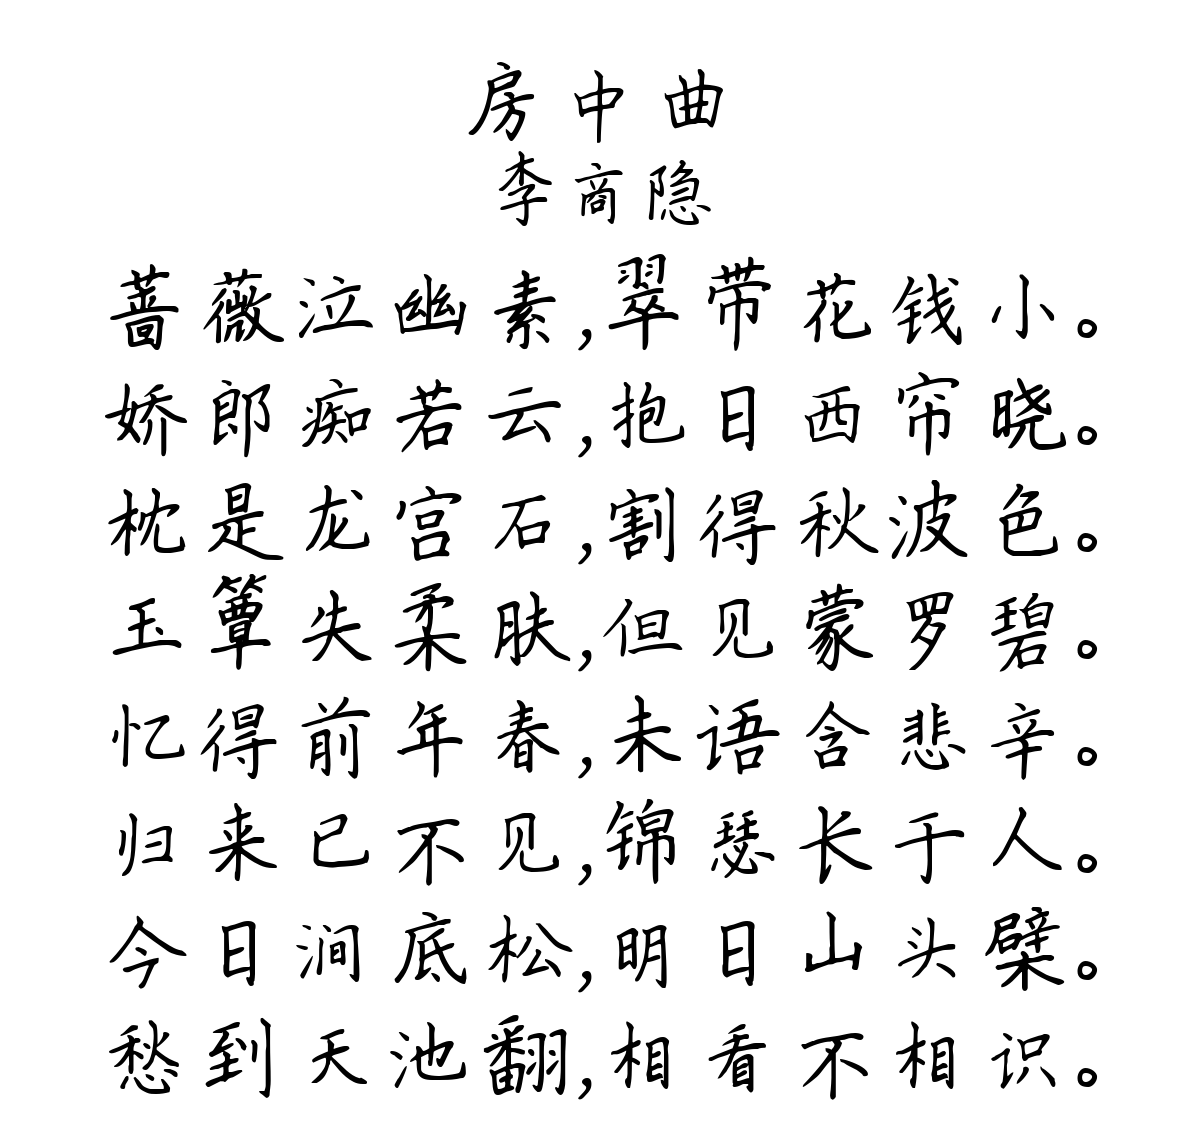 房中曲
李商隐
蔷薇泣幽素,翠带花钱小。
娇郎痴若云,抱日西帘晓。
枕是龙宫石,割得秋波色。
玉簟失柔肤,但见蒙罗碧。
忆得前年春,未语含悲辛。
归来已不见,锦瑟长于人。
今日涧底松,明日山头檗。
愁到天池翻,相看不相识。